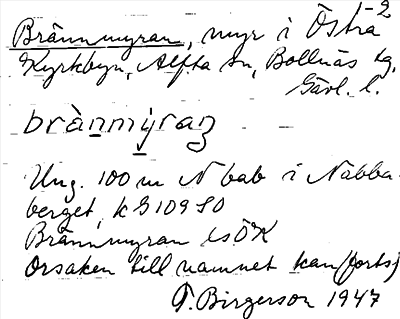 Brännmyran, myr i Östra -2
Kyrkbyn, Alfta sn, Bollnäs tg,
Gävl. l.
brànmýraṉ
Ung. 100 m N bab i Nabba-
berget, k G109 SO
Brännmyran LsÖK
Orsaken till namnet kan (forts)
T. Birgerson 1947